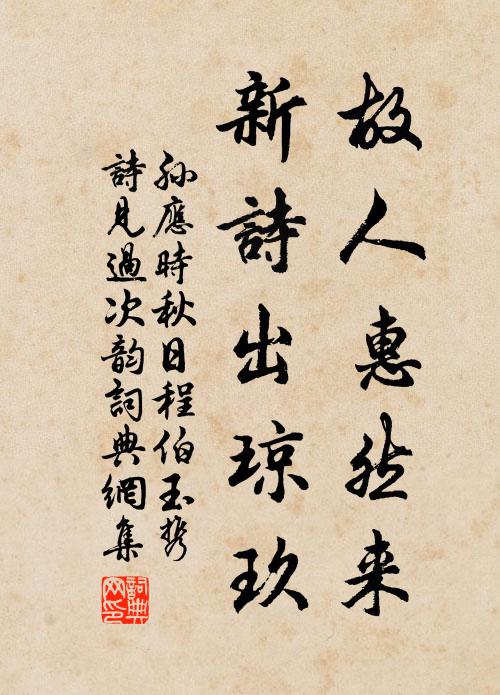 故人惠然来
新詩出琼玖
孙應時秋日程伯玉携
詩見過次韵詞典網集
詞典網印